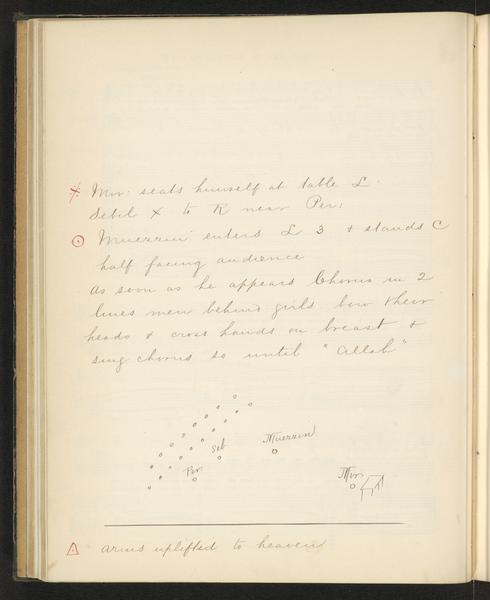 Mir: seats himself at table L.
Sebil X to R near Per:
Muezzin enters L 3 + stands C
half facing audience
As soon as he appears Chorus in 2
lines men behind girls bow their
heads + cross hands on breast +
sing chorus so until "Allah"
Seb Muezzin
Per. Mir.
arms uplifted to heaven